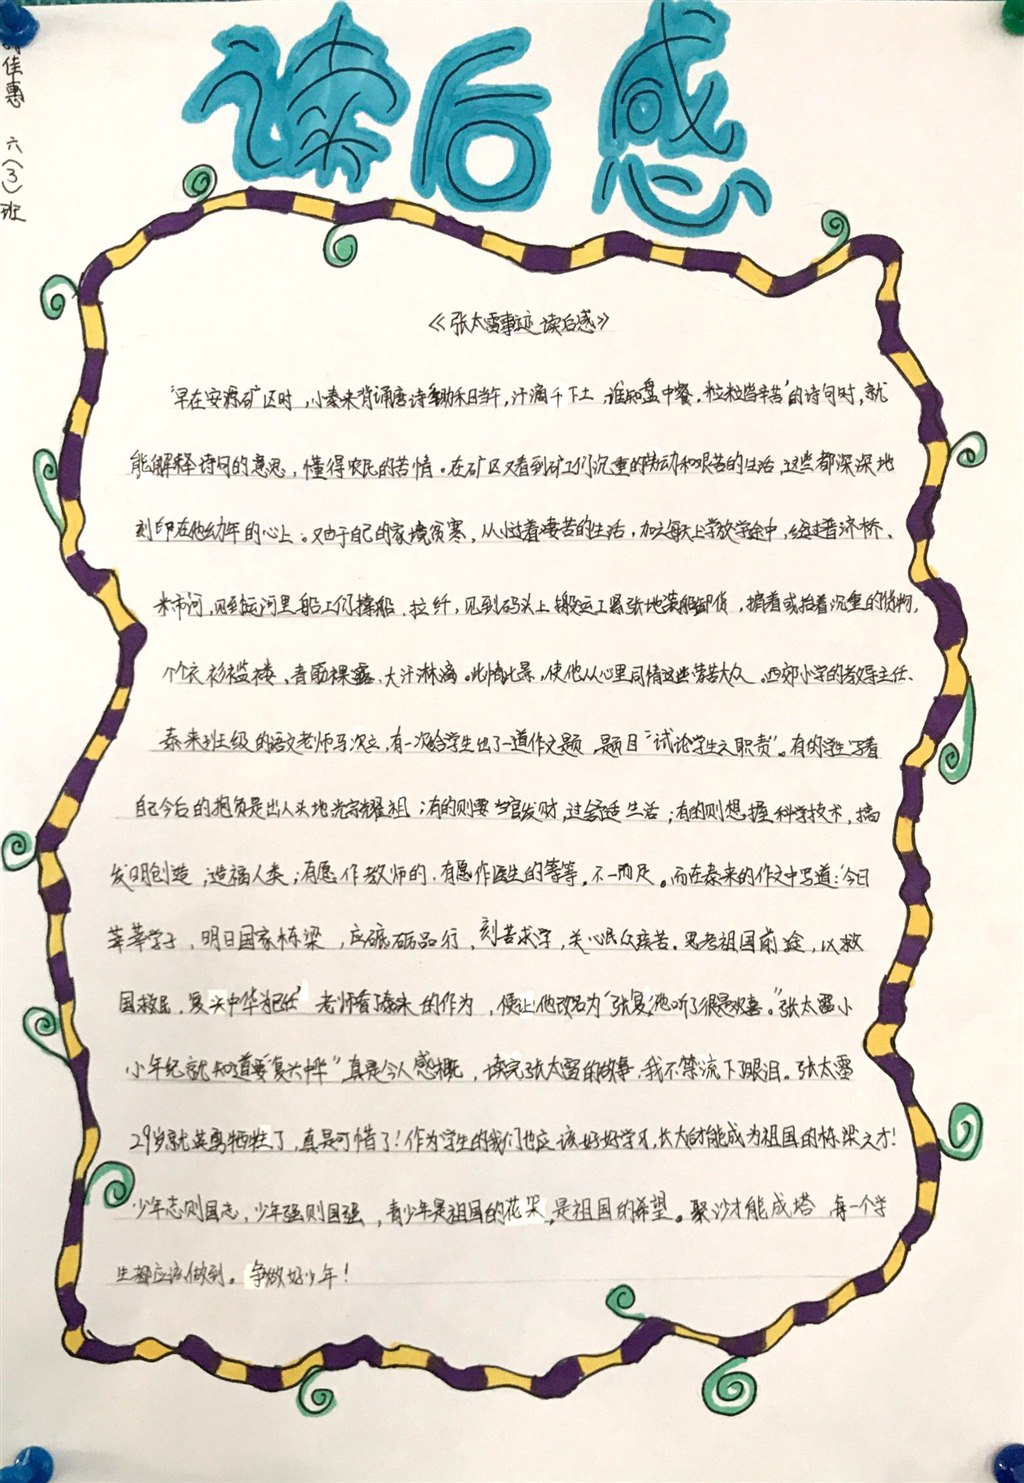 读后感
佳惠 六（3）班
《张太雷事迹读后感》
“早在安源矿区时，小泰来背诵唐诗‘锄禾日当午，汗滴禾下土，谁知盘中餐，粒粒皆辛苦’的诗句时，就
能解释诗句的意思，懂得农民的苦情。在矿区又看到矿工们沉重的劳动和艰苦的生活，这些都深深地
刻印在他幼年的心上。又由于自己的家境贫寒，从小过着凄苦的生活，加之每天上学放学途中，经过普济桥、
米市河，见到运河里船工们撑船、拉纤，见到码头上搬运工紧张地装船卸货，掮着或抬着沉重的货物，
个个衣衫褴褛，青筋裸露、大汗淋漓。此情此景，使他从心里同情这些劳苦大众。西郊小学的教导主任、
泰来班级的语文老师马次立，有一次给学生出了一道作文题，题目“试论学生之职责”。有的学生写着
自己今后的抱负是出人头地光宗耀祖；有的则要当官发财，过舒适生活；有的则想握科学技术，搞
发明创造，造福人类；有愿作教师的，有愿作医生的等等，不一而足。而在泰来的作文中写道：‘今日
莘莘学子，明日国家栋梁，应砥砺品行，刻苦求学，关心民众疾苦，思考祖国前途，以救
国救民，复兴中华为己任’老师看了泰来的作为，便让他改名为‘张复’，他听了很是欢喜。”张太雷小
小年纪就知道要“复兴中华”真是令人感概，读完张太雷的故事，我不禁流下了眼泪。张太雷
29岁就英勇牺牲了，真是可惜了！作为学生的我们也应该好好学习，长大才能成为祖国的栋梁之才！
少年志则国志，少年强则国强，青少年是祖国的花朵，是祖国的希望。聚沙才能成塔，每一个学
生都应该做到。争做好少年！